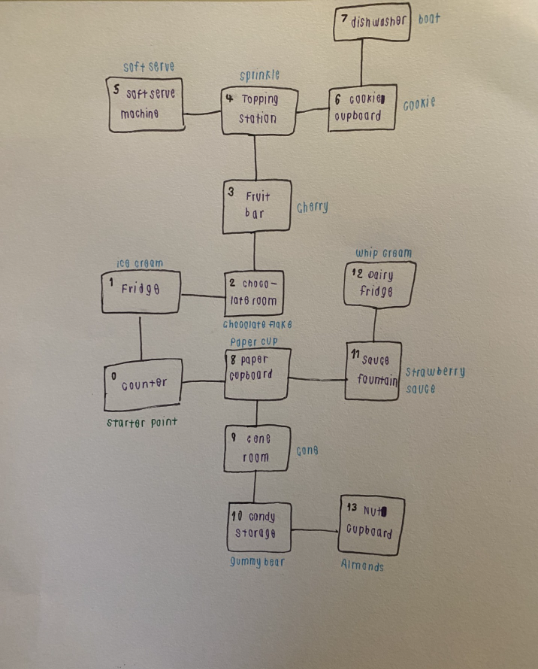 7 dishwasher
boat
soft serve
5 soft serve
machine
sprinkle
4 Topping
station
6 cookie
cupboard
cookie
3 Fruit
bar
cherry
ice cream
1 Fridge
2 choco-
late room
chocolate flake
whip cream
12 Dairy
fridge
0
counter
starter point
paper cup
8 paper
cupboard
11 sauce
fountain
strawberry
sauce
9 cone
room
cone
10 candy
storage
gummy bear
13 Nut
cupboard
Almonds